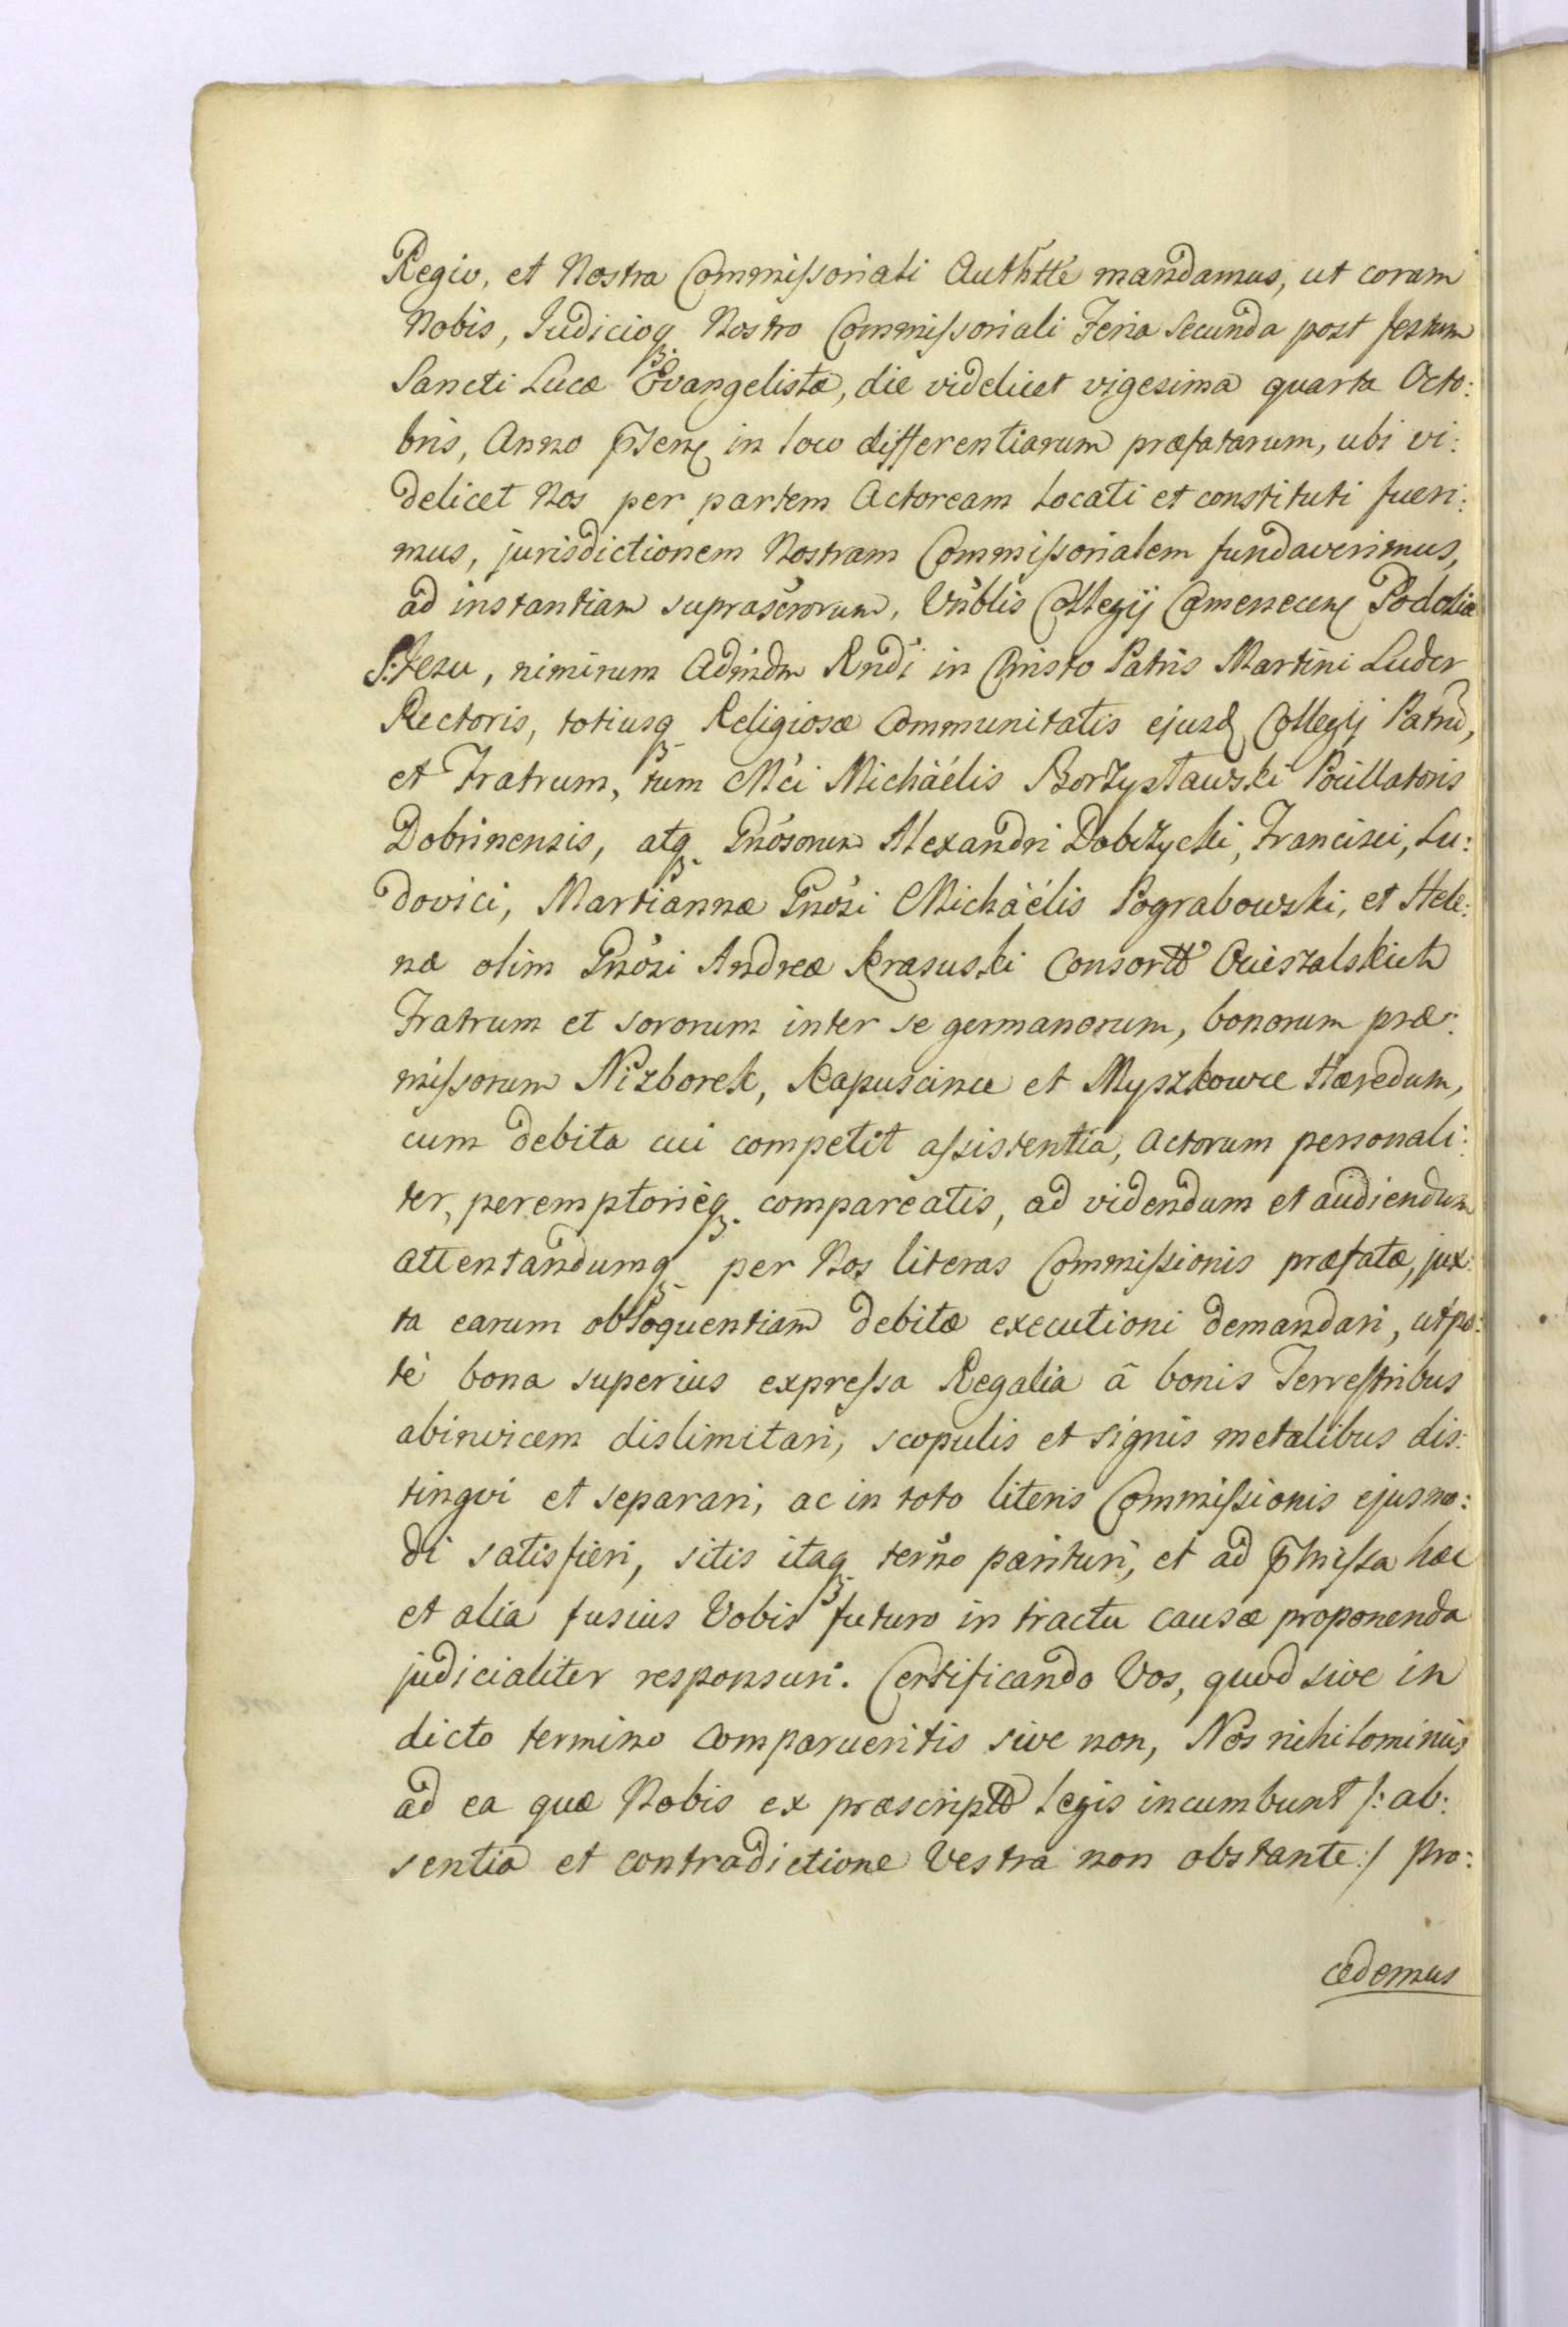 Regio, et Nostra Commissoriali Authtte mandamus, ut coram
Nobis, Judicioq; Nostro Commissoriali Feria Secunda post festum
Sancti Lucæ Evangelistæ, die videlicet vigesima quarta Octo:
bris, Anno p̃sen; in loco differentiarum præfatarum, ubi vi:
delicet Nos per partem Actoream Locati et constituti fueri:
mus, jurisdictionem Nostram Commissorialem fundaverimus,
ad instantiam suprascrorum, Vnblis Collegij Camenecen; Podoliæ
S: Jesu, nimirum Admdm Rndi in Christo Patris Martini Luder
Rectoris, totiusq; Religiosæ Communitatis ejusd; Collegij Patrũ,
et Fratrum, tum Mci Michäélis Borzysławski Pocillatoris
Dobrinensis, atq; Gnosorum Alexandri Dobrzycki, Francisci, Lu:
dovici, Martiannæ Gnosi Michäélis Pograbowski, et Hele:
næ olim Gnosi Andreæ Krasuski Consortt Ocieszalskich
Fratrum et sororum inter se germanorum, bonorum præ:
missorum Nizborek, Kapuscince et Myszkowce Hæredum,
cum debita cui competit assistentia, Actorum personali:
ter, peremptorièq; compareatis, ad videndum et audiendum
attentandumq; per Nos literas Commissionis præfatæ, jux:
ta earum obloquentiam debitæ executioni demandari, utpo:
tè bona superius expressa Regalia â bonis Terrestribus
abinvicem dislimitari, scopulis et signis metalibus dis:
tingvi et separari, ac in toto literis Commissionis ejusmo:
di satisfieri, sitis itaq; terno parituri, et ad p̃missa hæc
et alia fusius Vobis futuro in tractu causæ proponenda
judicialiter responsuri. Certificando Vos, quod sive in
dicto termino Comparueritis sive non, Nos nihilominus
ad ea quæ Nobis ex præscripto Legis incumbunt /: ab:
sentia et contradictione Vestra non obstante :/ pro:
cedemus